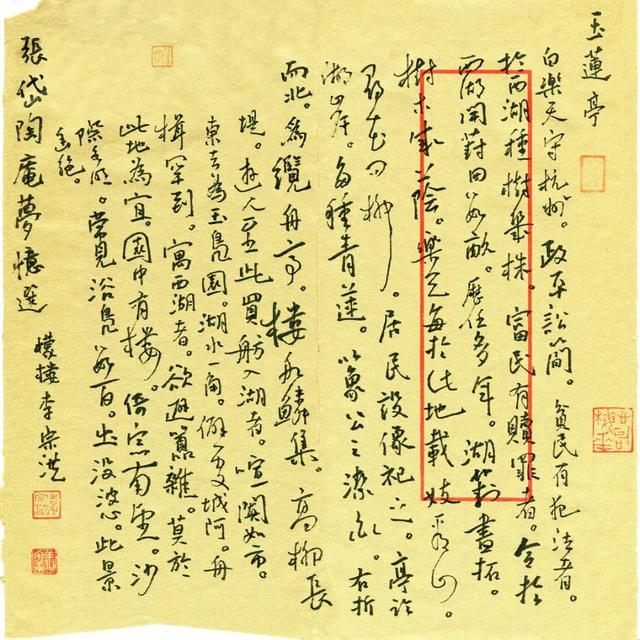 玉蓮亭
白樂天守杭州。政平訟簡。貧民有犯法者。
於西湖種樹幾株。富民有贖罪者。令於
西湖開葑田數畝。歷任多年。湖葑盡拓。
樹木成蔭。樂天每於此地載妓看山。
尋花問柳。居民設像祀之。亭臨
湖岸。多種青蓮。以象公之潔白。右折
而北。為纜舟亭。樓船鱗集。高柳長
堤。遊人至此買舫入湖者。喧闐如市。
東去為玉鳧園。湖水一角。僻處城阿。舟
楫罕到。寓西湖者。欲避囂雜。莫於
此地為宜。園中有樓。倚窗南望。沙
際水明。常見浴鳧數百。出沒波心。此景
幽絕。
張岱陶庵夢憶選
李宗洪